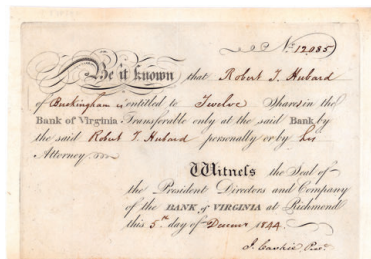 No. 12,085
Be it known that Robert T. Hubard
of Buckingham is entitled to Twelve Shares in the
Bank of Virginia Transferable only at the said Bank by
the said Robert T. Hubard personally or by his
Attorney
Witness the Seal of
the President Directors and Company
of the BANK of VIRGINIA at Richmond
this 5th day of 1844.
J. Caskie Prest.